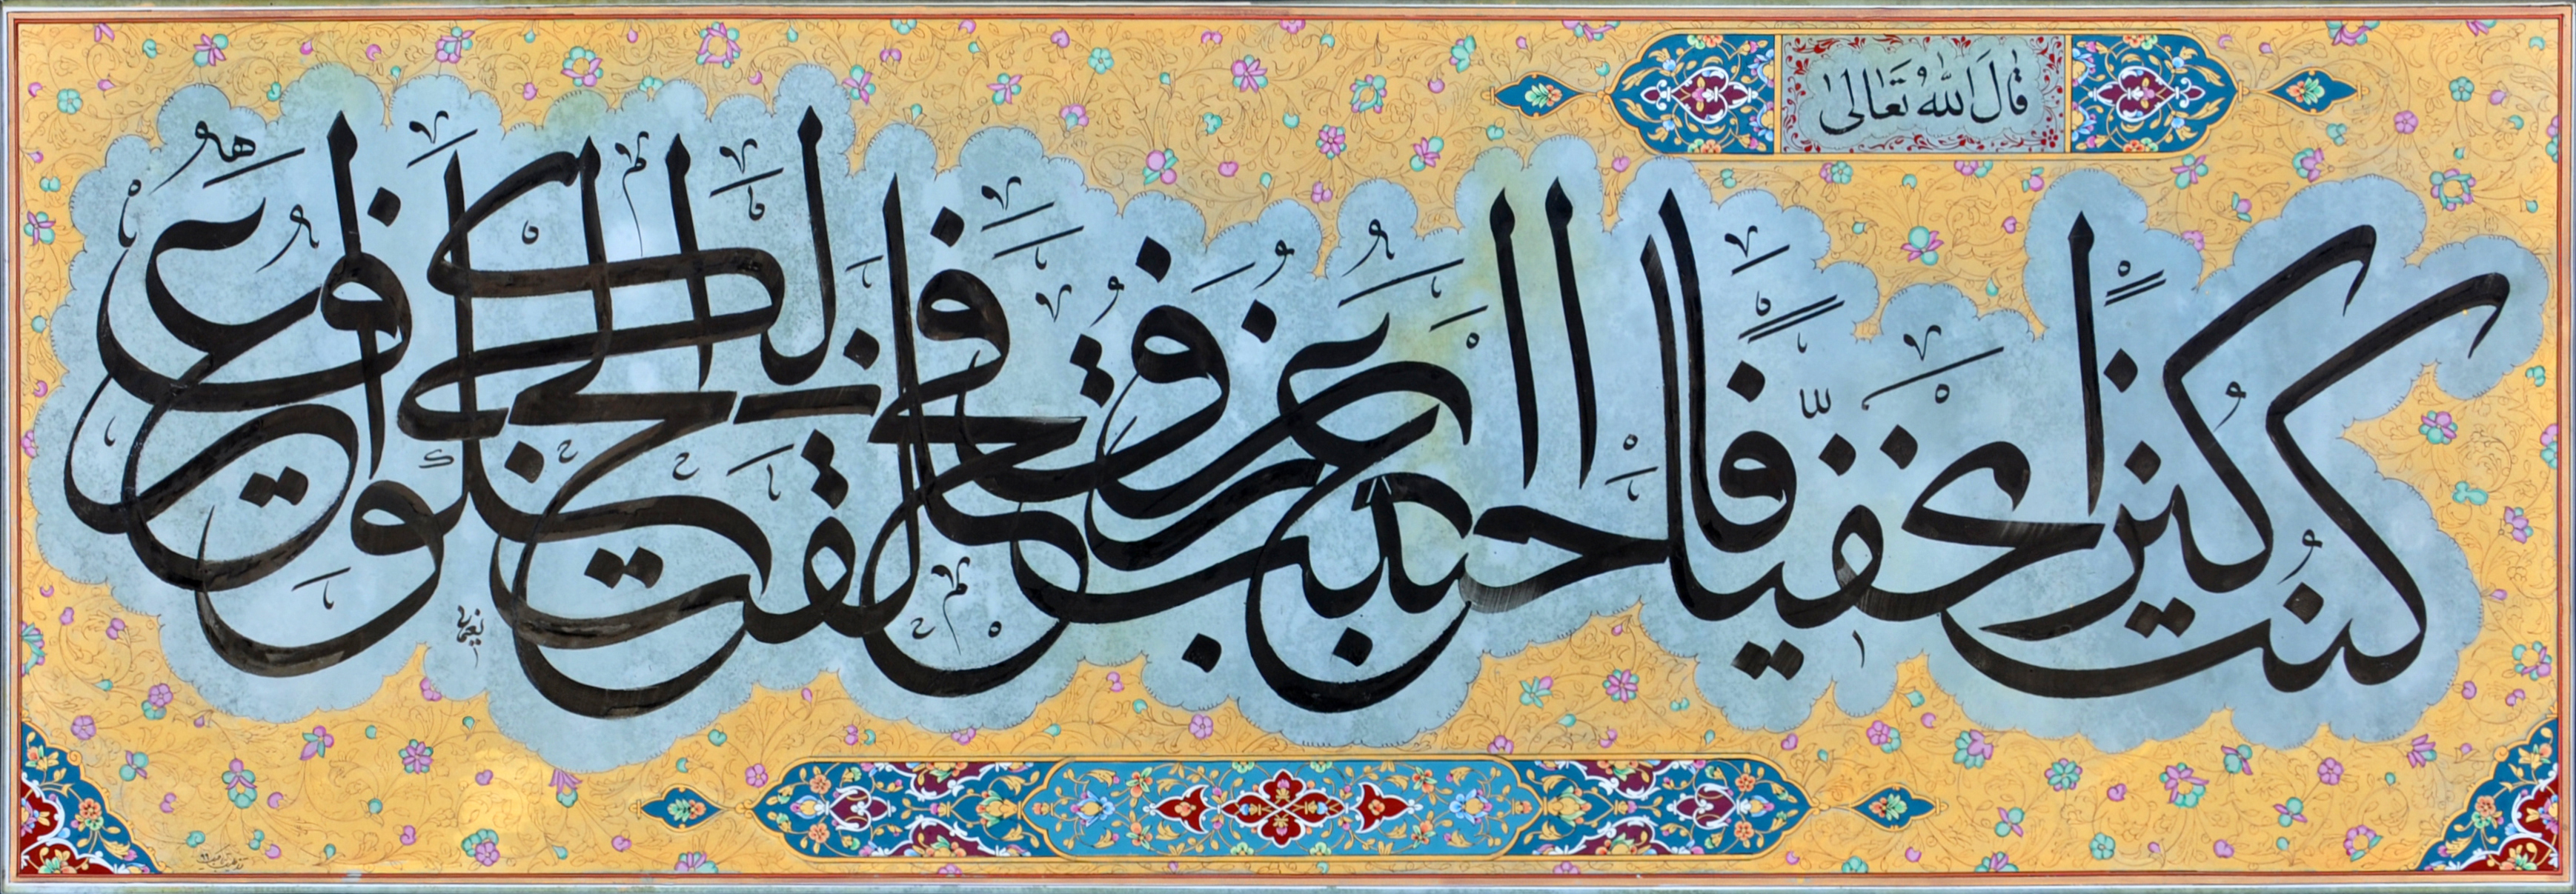 قَالَ اللهُ تَعَالى
كُنتُ كَنزًا مَخفِيًّا فَاَحبَبتُ اَن اُعرَفَ فَخَلَقتُ الخَلقَ لِكَى اُعرَفَ
نعمان